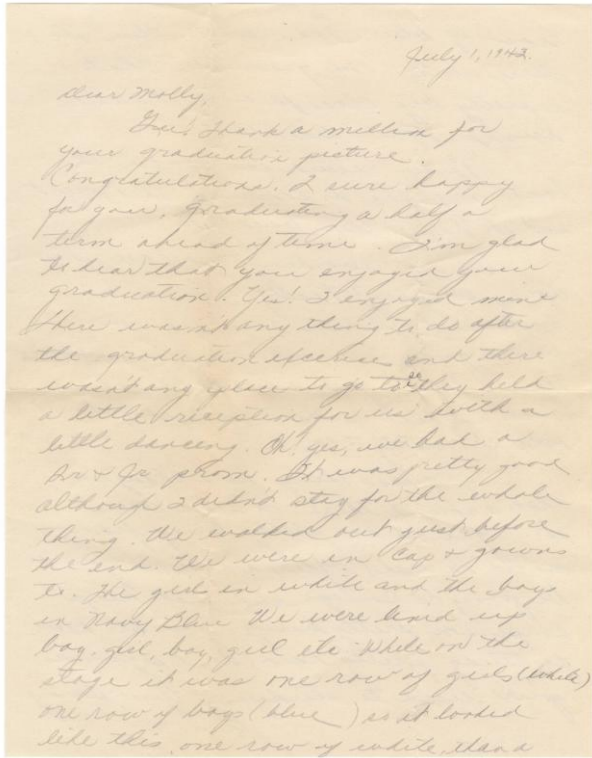 July 1, 1943.
Dear Molly,
Gee! Thank a million for
your graduation picture.
Congratulations. I sure happy
for your, graduating a half a
term ahead of time. I'm glad
to hear that you enjoyed your
graduation. Yes! I enjoyed mine
there wasn't any thing to do after
the graduation excerise and there
wasn't any place to go to so they held
a little reception for us with a
little dancing. Oh! yes, we had a
Sr & Jr prom. It was pretty good
although I didn't stay for the whole
thing. We walked out just before
the end. We were in cap & gowns
to. The girls in white and the boys
in Navy Blue We were lined up
boy, girl, boy, girl etc While on the
stage it was one row of girls (white)
one row of boys (blue) so it looked
like this, one row of white, than a